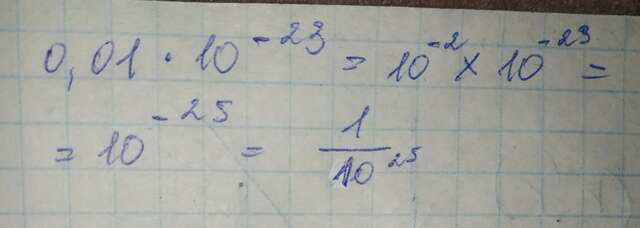 0,01 · 10⁻²³ = 10⁻² × 10⁻²³ =
= 10⁻²⁵ = 1/10²⁵